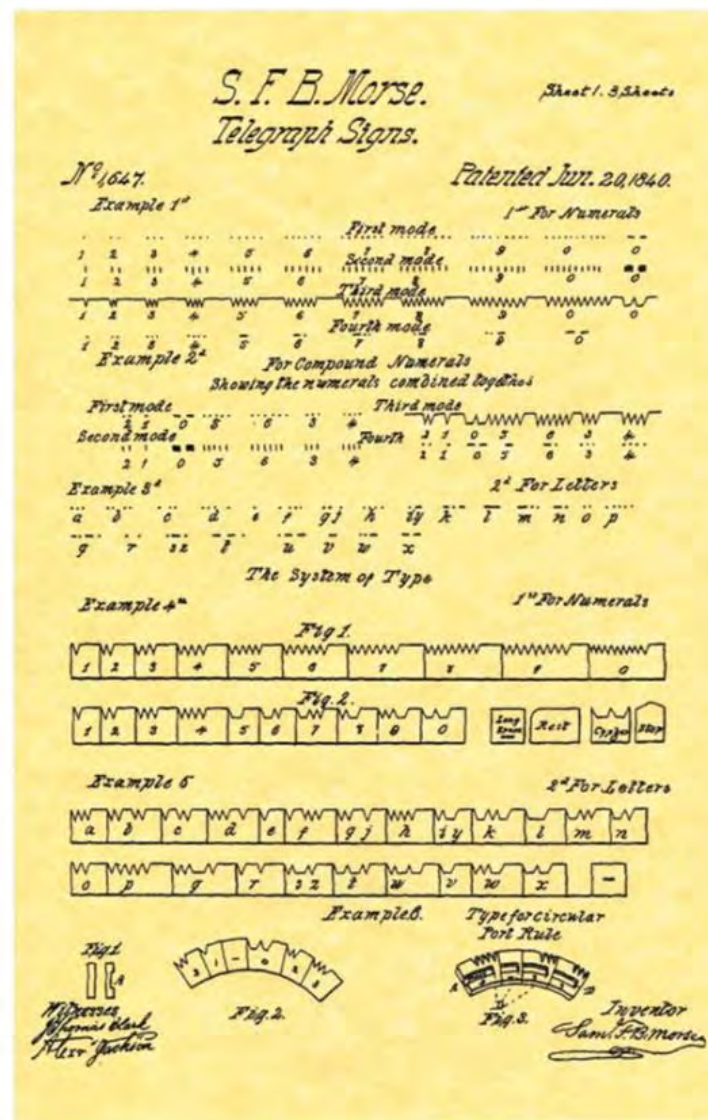 S. F. B. Morse.
Sheet 1. 3 Sheets
Telegraph Signs.
No 1,647.
Patented Jun. 20, 1840.
Example 1st
1st For Numerals
First mode
1 2 3 4 5 6 7 8 9 0 0
Second mode
1 2 3 4 5 6 7 8 9 0 0
Third mode
1 2 3 4 5 6 7 8 9 0 0
Fourth mode
1 2 3 4 5 6 7 8 9 0
Example 2d
For Compound Numerals
Showing the numerals combined together
First mode
2 1 0 5 6 3 4
Third mode
2 1 0 5 6 3 4
Second mode
2 1 0 5 6 3 4
Fourth
2 1 0 5 6 3 4
Example 3d
2d For Letters
a b c d e f gj h iy k l m n o p
q r sz t u v w x
The System of Type
Example 4th
1st For Numerals
Fig 1.
1 2 3 4 5 6 7 8 9 0
Fig. 2.
1 2 3 4 5 6 7 8 9 0 Long Space Rest Stop
Example 5
2d For Letters
a b c d e f gj h iy k l m n
o p q r sz t w v w x
Example 6.
Type for circular
Port Rule
Fig 1
A
2 1 - 0
Fig. 2.
Fig. 3.
Witnesses
Thomas Clark
Alexr Jackson
Inventor
Saml. F. B. Morse